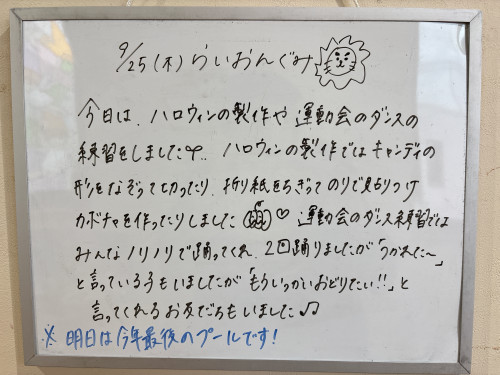 9/25(木)らいおんぐみ
今日は、ハロウィンの製作や運動会のダンスの
練習をしました♪。ハロウィンの製作ではキャンディの
形をなぞって切ったり、折り紙をちぎってのりで貼りつけ
カボチャを作ったりしました♡ 運動会のダンス練習では
みんなノリノリで踊ってくれ、2回踊りましたが「つかれた〜」
と言っている子もいましたが「もういっかいおどりたい!!」と
言ってくれるお友だちもいました♫
※明日は今年最後のプールです!